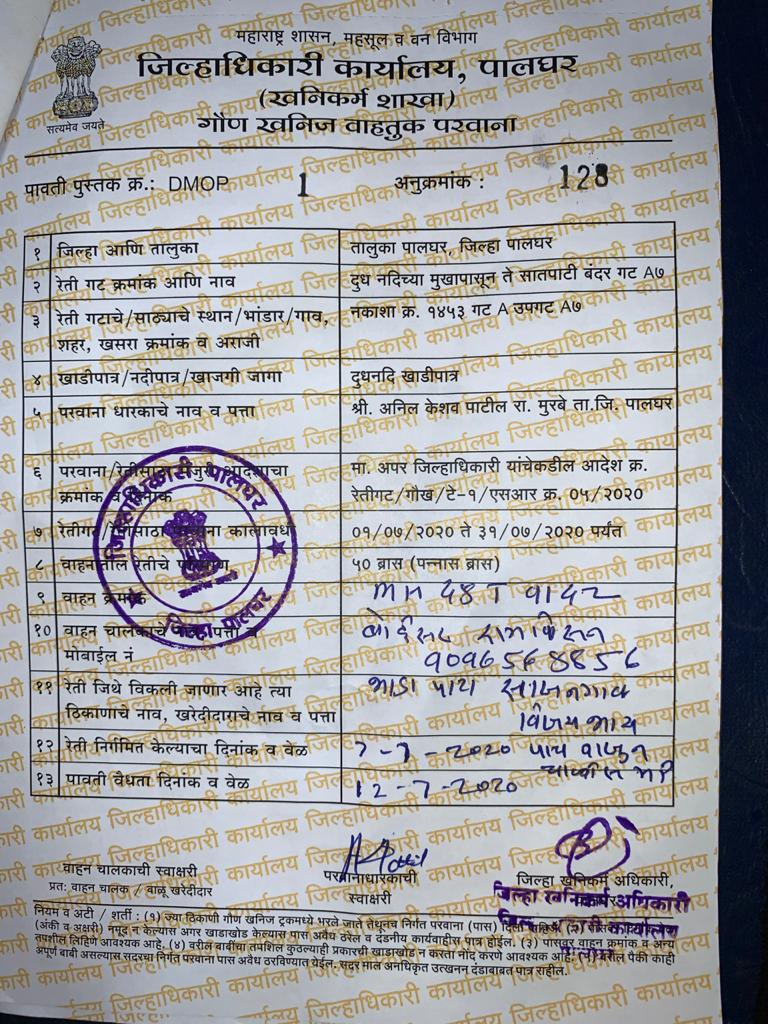 महाराष्ट्र शासन, महसूल व वन विभाग
जिल्हाधिकारी कार्यालय, पालघर
(खनिकर्म शाखा)
गौण खनिज वाहतुक परवाना
सत्यमेव जयते
पावती पुस्तक क्र.: DMOP 1 अनुक्रमांक : 128
१ जिल्हा आणि तालुका तालुका पालघर, जिल्हा पालघर
२ रेती गट क्रमांक आणि नाव दुध नदिच्या मुखापासून ते सातपाटी बंदर गट A७
३ रेती गटाचे/साठ्याचे स्थान/भांडार/गाव, नकाशा क्र. १४५३ गट A उपगट A७
शहर, खसरा क्रमांक व अराजी
४ खाडीपात्र/नदीपात्र/खाजगी जागा दुधनदि खाडीपात्र
५ परवाना धारकाचे नाव व पत्ता श्री. अनिल केशव पाटील रा. मुरबे ता.जि. पालघर
६ परवाना/रेतीसाठा मंजुरी आदेशाचा मा. अपर जिल्हाधिकारी यांचेकडील आदेश क्र.
क्रमांक व दिनांक रेतीगट/गौख/टे-१/एसआर क्र. ०५/२०२०
७ रेतीगट परवाना कालावधी ०१/०७/२०२० ते ३१/०७/२०२० पर्यंत
८ वाहनातील रेतीचे ५० ब्रास (पन्नास ब्रास)
९ वाहन क्रमांक MH 48 T
१० वाहन चालकाचे पत्ता व बोईसर
मोबाईल नं 9096568856
११ रेती जिथे विकली जाणार आहे त्या
ठिकाणाचे नाव, खरेदीदाराचे नाव व पत्ता विजय भाय
१२ रेती निर्गमित केल्याचा दिनांक व वेळ 7-7-2020 पाच वाजून
१३ पावती वैधता दिनांक व वेळ 12-7-2020
जिल्हाधिकारी पालघर
जिल्हा पालघर
वाहन चालकाची स्वाक्षरी परवानाधारकाची जिल्हा खनिकर्म अधिकारी,
प्रतः वाहन चालक / वाळू खरेदीदार स्वाक्षरी
जिल्हा खनिकर्म अधिकारी
नियम व अटी / शर्ती : (१) ज्या ठिकाणी गौण खनिज ट्रकमध्ये भरले जाते तेथूनच निर्गत परवाना (पास)
(अंकी व अक्षरी) नमूद न केल्यास अगर खाडाखोड केल्यास पास अवैध ठरेल व दंडनीय कार्यवाहीस पात्र होईल. (३) पासवर वाहन क्रमांक व अन्य
तपशील लिहिणे आवश्यक आहे. (४) वरील बाबींचा तपशिल कुठल्याही प्रकारची खाडाखोड न करता नोंद करणे आवश्यक आहे. वरील पैकी काही
अपूर्ण बाबी असल्यास सदरचा निर्गत परवाना पास अवैध ठरविण्यात येईल. सदर माल अनधिकृत उत्खनन दंडाबाबत पात्र राहील.